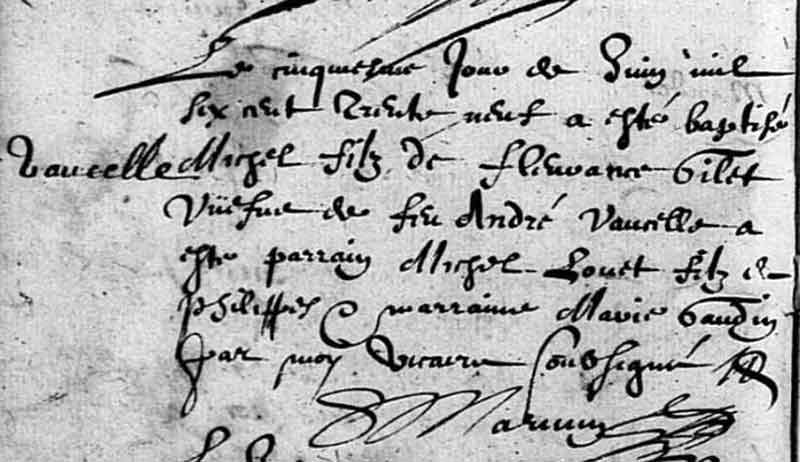 Le cinquiesme Jour de Juin mil
six cent Trente neuf a esté baptisé
Vaucelle Michel filz de fleurance Gilet
Vüefue de feu André Vaucelle a
esté parrain Michel Louet filz de
Philippes & marraine Marie Gaudin
par moy Vicaire soubsigné